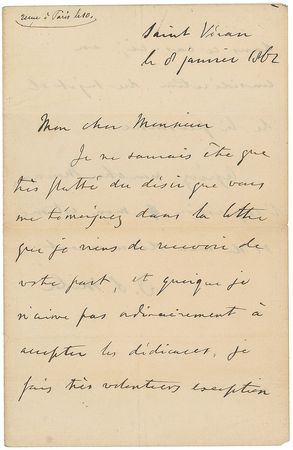 reçue à Paris le 10.
Saint Véran
le 8 janvier 1862
Mon cher Monsieur
Je ne saurais être que
très flatté du désir que vous
me témoignez dans la lettre
que je viens de recevoir de
votre part et quoique je
n'aime pas ordinairement à
accepter les dédicaces, je
fais très volontiers exception